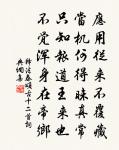 應用從來不覆藏
當機何得昧真常
只知報道王來也
不覺渾身在帝鄉
釋法泰頌古十二首詞
典網集